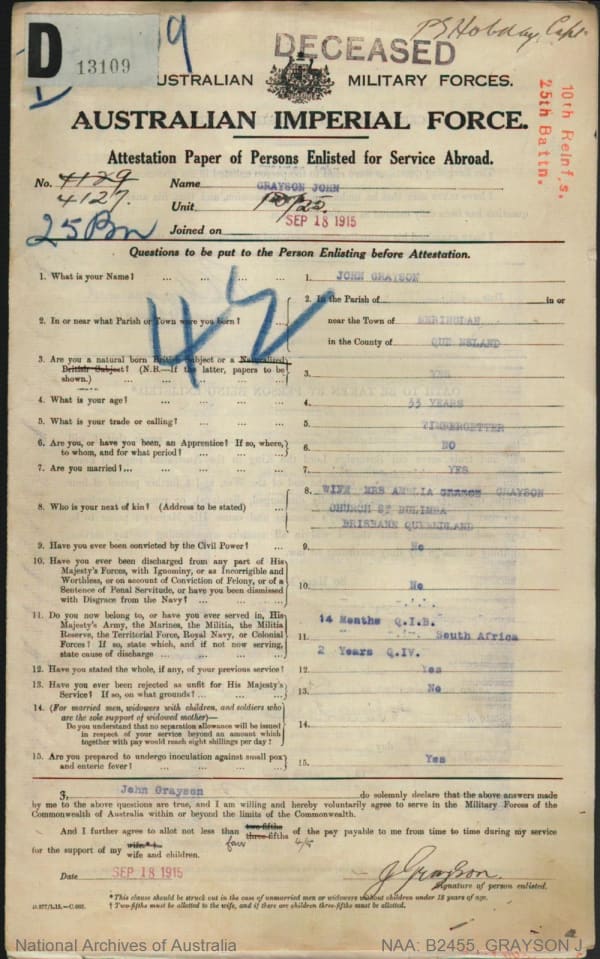 D
13109
DECEASED
P S Hobday, Capt
AUSTRALIAN MILITARY FORCES.
AUSTRALIAN IMPERIAL FORCE.
10th Reinf,s.
25th Battn.
Attestation Paper of Persons Enlisted for Service Abroad.
No. 4129 Name GRAYSON JOHN
4127. Unit 10/25.
25 Bn Joined on SEP 18 1915
Questions to be put to the Person Enlisting before Attestation.
42
1. What is your Name? ... ... ... ... 1. JOHN GRAYSON
2. In or near what Parish or Town were you born? ... 2. In the Parish of in or
near the Town of MERINGDAN
in the County of QUEENSLAND
3. Are you a natural born British Subject or a Naturalized
British Subject? (N.B.—If the latter, papers to be
shown.) ... ... ... ... 3. YES
4. What is your age? ... ... ... ... 4. 33 YEARS
5. What is your trade or calling? ... ... ... 5. TIMBERGETTER
6. Are you, or have you been, an Apprentice? If so, where,
to whom, and for what period? ... ... ... 6. NO
7. Are you married? ... ... ... ... 7. YES
8. Who is your next of kin? (Address to be stated) ... 8. WIFE MRS AMELIA GRAYSON
CHURCH ST BULIMBA
BRISBANE QUEENSLAND
9. Have you ever been convicted by the Civil Power? ... 9. No
10. Have you ever been discharged from any part of His
Majesty's Forces, with Ignominy, or as Incorrigible and
Worthless, or on account of Conviction of Felony, or of a
Sentence of Penal Servitude, or have you been dismissed
with Disgrace from the Navy? ... ... ... 10. No
11. Do you now belong to, or have you ever served in, His
Majesty's Army, the Marines, the Militia, the Militia
Reserve, the Territorial Force, Royal Navy, or Colonial
Forces? If so, state which, and if not now serving,
state cause of discharge ... ... ... 11. 14 Months Q.I.B.
South Africa
2 Years Q.IV.
12. Have you stated the whole, if any, of your previous service? 12. Yes
13. Have you ever been rejected as unfit for His Majesty's
Service? If so, on what grounds? ... ... ... 13. No
14. (For married men, widowers with children, and soldiers who
are the sole support of widowed mother)—
Do you understand that no separation allowance will be issued
in respect of your service beyond an amount which
together with pay would reach eight shillings per day? 14.
15. Are you prepared to undergo inoculation against small pox
and enteric fever? ... ... ... ... 15. Yes
I, John Grayson do solemnly declare that the above answers made
by me to the above questions are true, and I am willing and hereby voluntarily agree to serve in the Military Forces of the
Commonwealth of Australia within or beyond the limits of the Commonwealth.
And I further agree to allot not less than two-fifths
three-fifths of the pay payable to me from time to time during my service
four 4/5
for the support of my wife*†
wife and children.
Date SEP 18 1915
J Grayson.
Signature of person enlisted.
* This clause should be struck out in the case of unmarried men or widowers without children under 18 years of age.
† Two-fifths must be allotted to the wife, and if there are children three-fifths must be allotted.
D.577/1.15.—C.603.
National Archives of Australia NAA: B2455, GRAYSON J